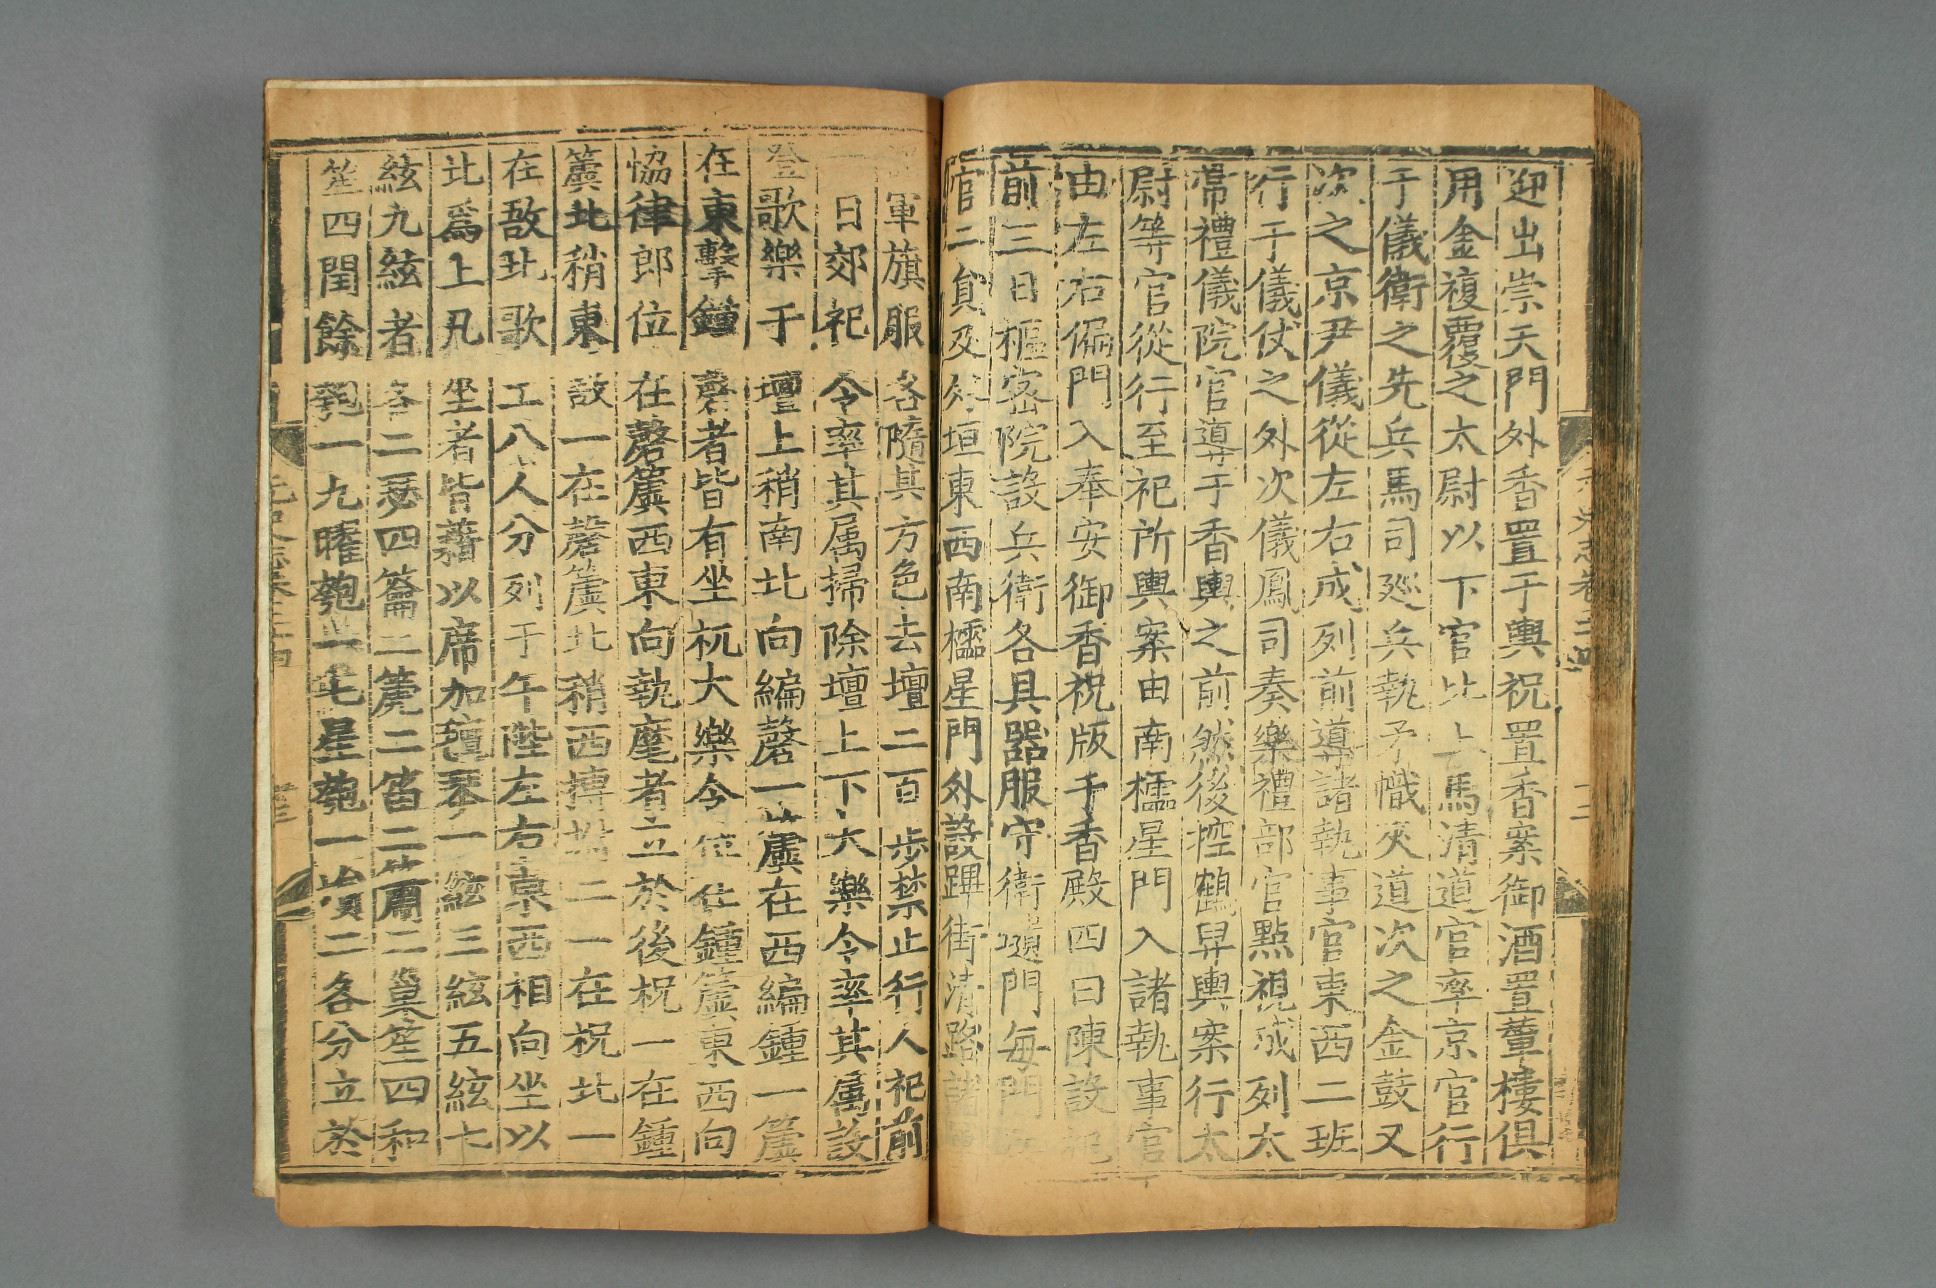 迎出崇天門外香置于輿祝置香案御酒置輦樓俱
用金複覆後之太尉以下官比上馬清道官率京官行
于儀衛之先兵馬司廵兵執矛幟夾道次之金鼓又
次之京尹儀從左右成列前導諸執事官東西二班
行于儀仗之外次儀鳳司奏樂禮部官點視成列太
常禮儀院官導于香輿之前然後控鶴舁輿案行太
尉等官從行至祀所輿案由南櫺星門入諸執事官
由左右偏門入奉安御香祝版于香殿四曰陳設祀
前三日樞密院設兵衛各具器服守衛壝門每門
官二員及外垣東西南櫺星門外設蹕街清路諸
軍旗服各隨其方色去壇二百步禁止行人祀前
一日郊祀令率其属掃除壇上下大樂令率其属設
登歌樂于壇上稍南北向編磬一簴在西編鍾一簴
在東擊鍾磬者皆有坐杌大樂令位在鍾簴東西向
恊律郎位在磬簴西東向執麾者立於後柷一在鍾
簴北稍東敔一在磬簴北稍西搏拊二一在柷北一
在敔北歌工八人分列于午陛左右東西相向坐以
北爲上凡坐者皆藉以席加氊琴一絃三絃五絃七
絃九絃者各二瑟四籥二篪二笛二簫二巢笙四和
笙四閏餘匏一九曜匏一七星匏一塤二各分立於
元史志卷二十四